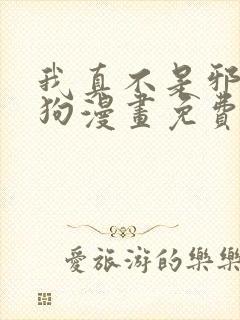 我真不是邪
狗漫畫免費
愛旅游的樂樂